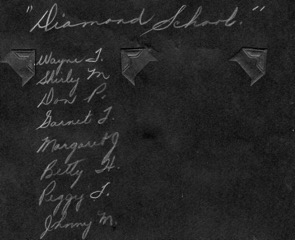 "Diamond School."
Wayne T.
Shirly M.
Don P.
Garnet T.
Margaret J
Betty H.
Peggy T.
Jhonny M.